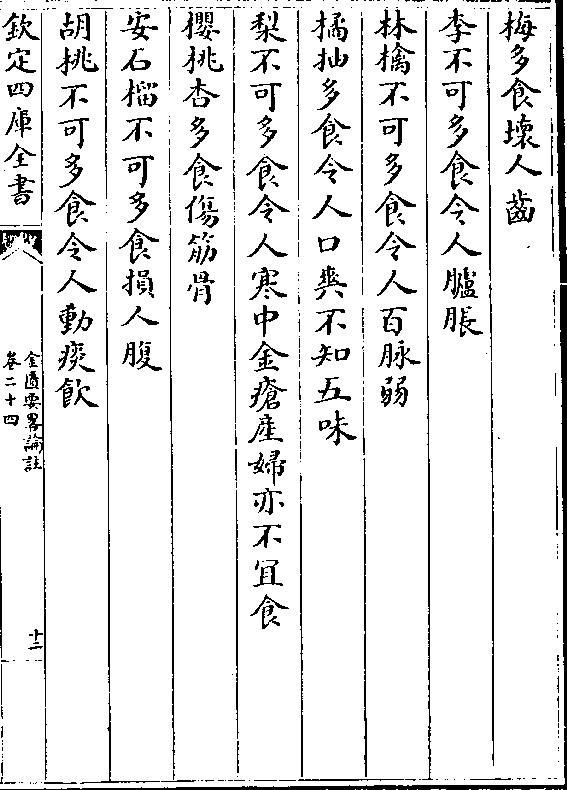 梅多食壊人齒
李不可多食令人臚脹
林檎不可多食令人百脉弱
橘柚多食令人口爽不知五味
梨不可多食令人寒中金瘡産婦亦不宜食
櫻桃杏多食傷筋骨
安石榴不可多食損人腹
胡桃不可多食令人動痰飲
欽定四庫全書
金匱要畧論註
卷二十四
十二